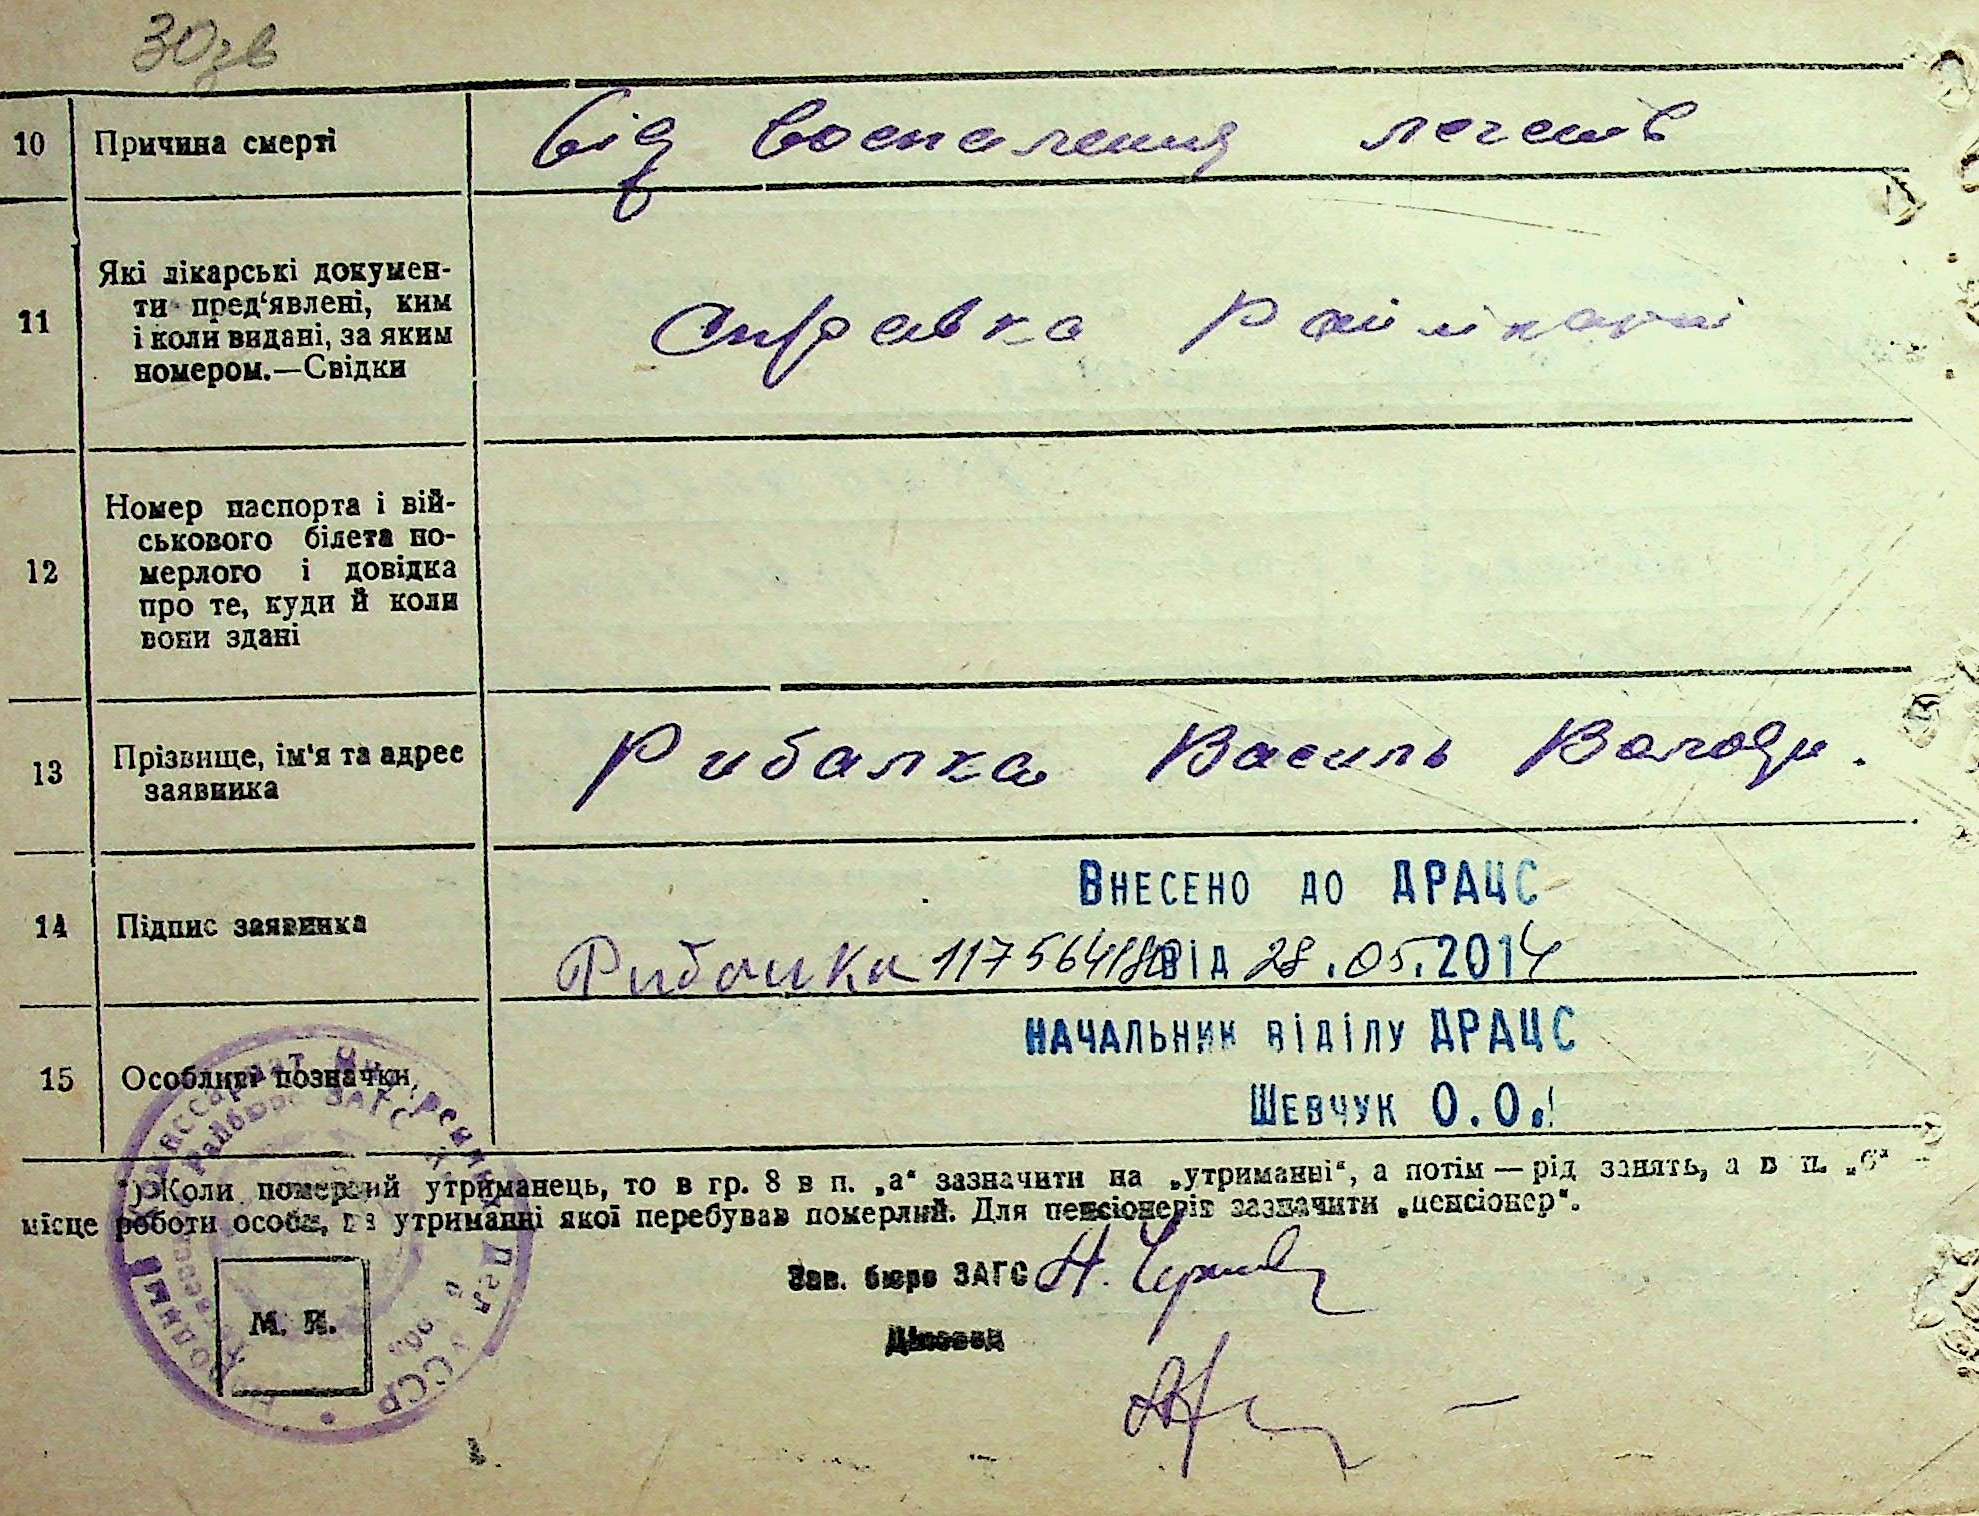 30зв
10 Причина смерті від воспаления легенів
11 Які лікарські докумен-
ти пред‘явлені, ким
і коли видані, за яким
номером.—Свідки
Справка Райлікарні
12 Номер паспорта і вій-
ськового білета по-
мерлого і довідка
про те, куди й коли
вони здані
13 Прізвище, ім'я та адрес
заявника
Рибалка Василь Володи.
Внесено до ДРАЦС
14 Підпис заявника
Рибалка від 28.05.2014
Начальник віділу ДРАЦС
15 Особливі позначки
Шевчук О.О.
*) Коли померлий утриманець, то в гр. 8 в п. „а“ зазначити на „утриманні“, а потім — рід занять, а в п. „б“
місце роботи особи, на утриманні якої перебував померлий. Для пенсіонерів зазначити „пенсіонер“.
Зав. бюро ЗАГС
Діловод
М. П.
Райбюро ЗАГС
УССР